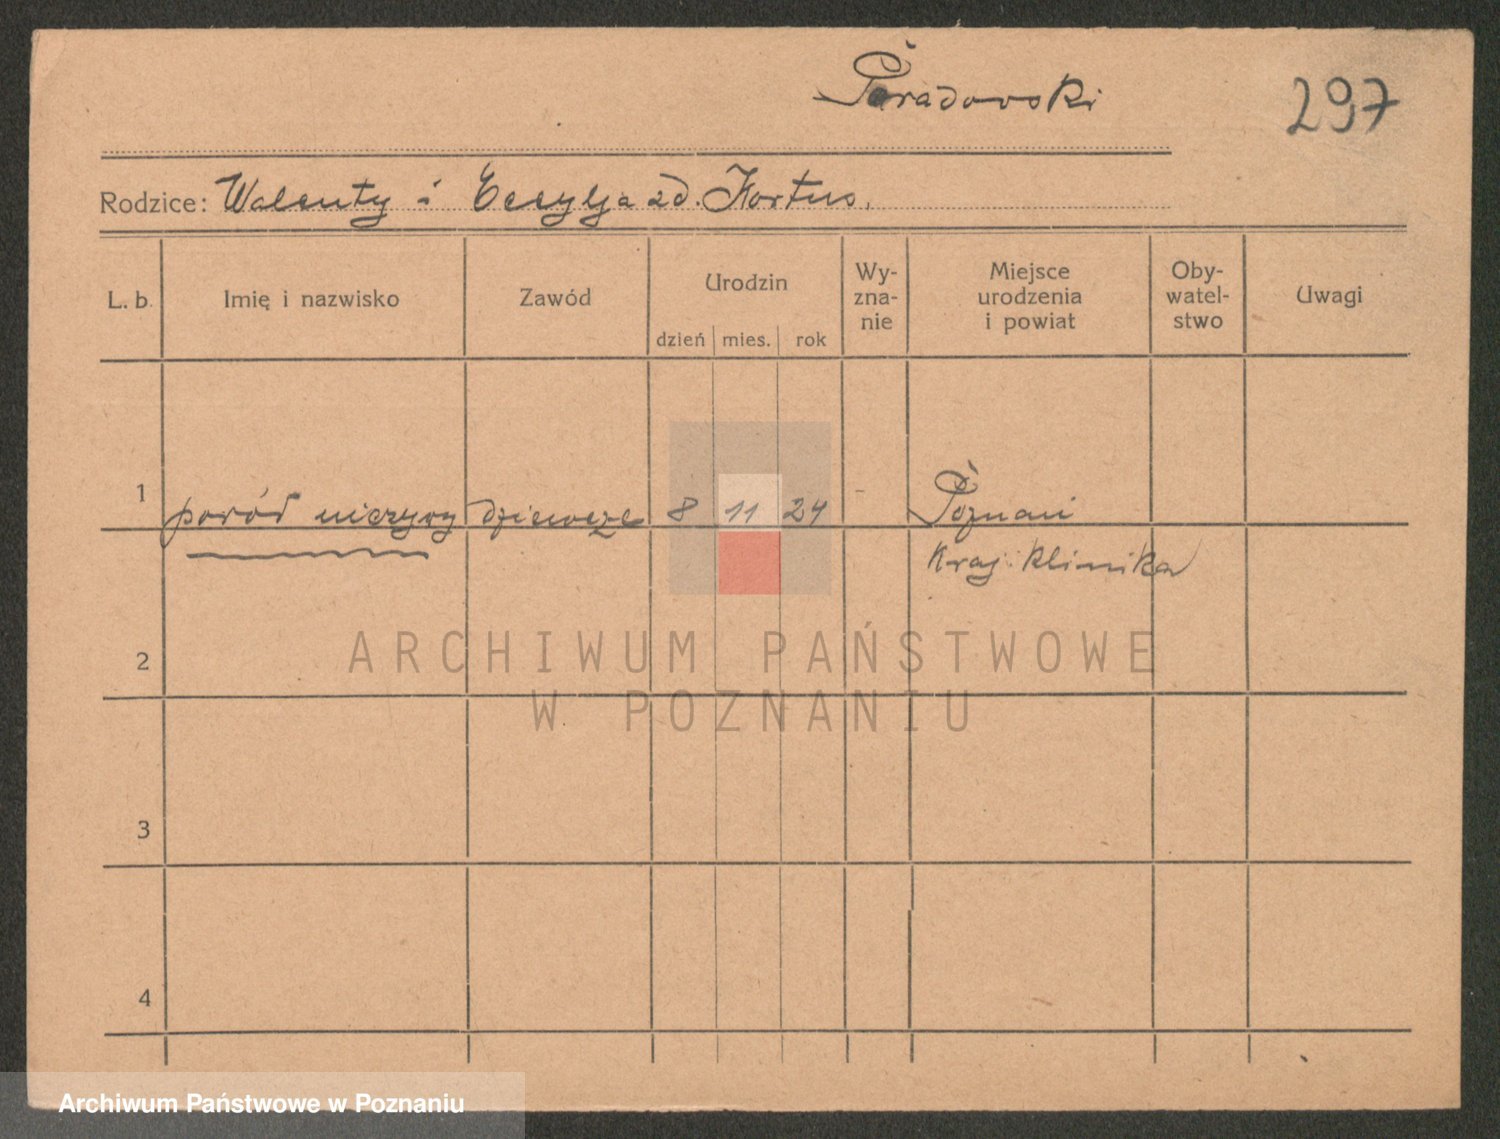 Paradowski
297
Rodzice: Walenty i Cecylja zd. Kortus.
L. b.
Imię i nazwisko
Zawód
Urodzin
dzień mies. rok
Wy-
zna-
nie
Miejsce
urodzenia
i powiat
Oby-
watel-
stwo
Uwagi
1 poród nieżywy dziewczę 8 11 24 - Poznań
Kraj. klinika
2
3
4
ARCHIWUM PAŃSTWOWE
W POZNANIU
Archiwum Państwowe w Poznaniu